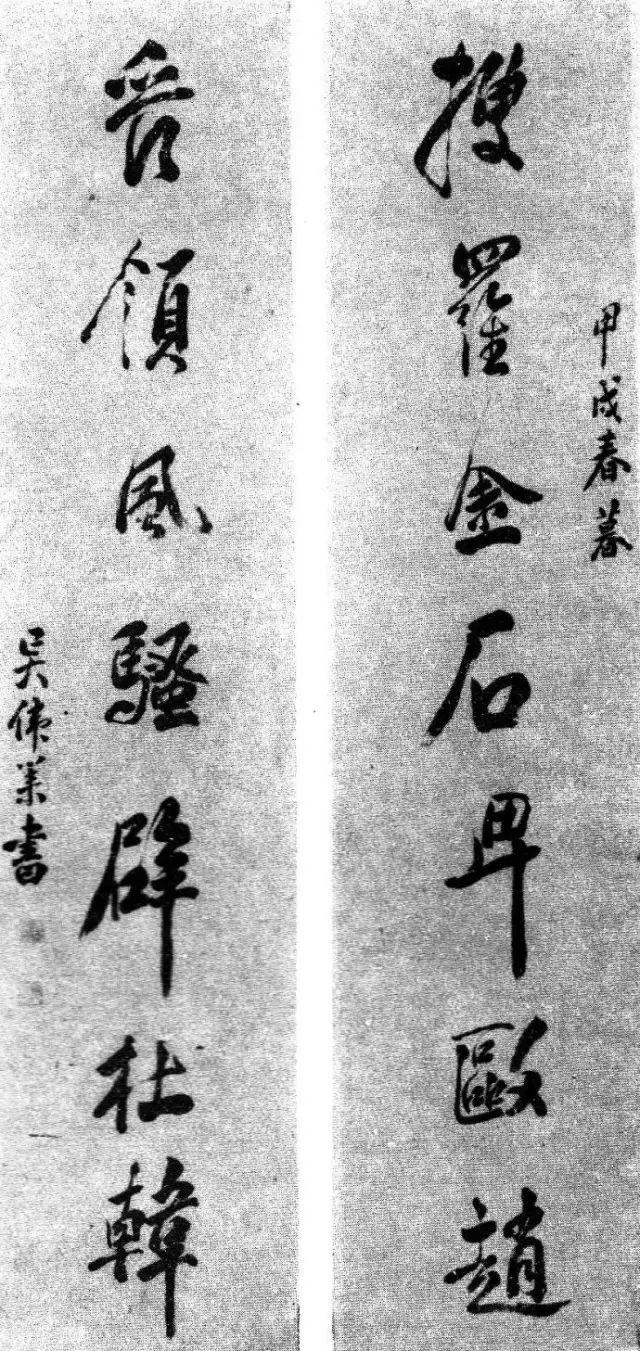 甲戌春暮
搜羅金石卑歐趙
管領風騷辟杜韓
吳偉業書